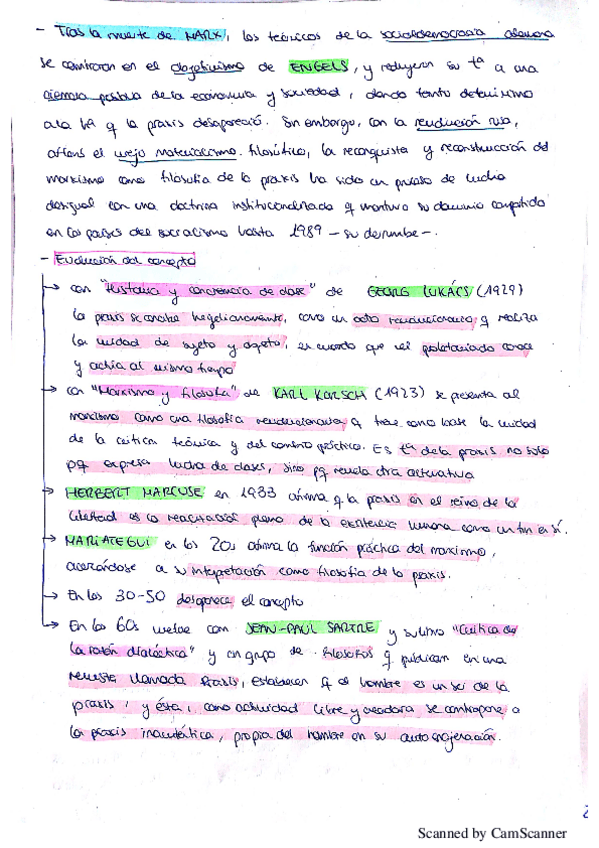 - Tras la muerte de MARX, los teóricos de la socialdemocracia alemana
se centraron en el objetivismo de ENGELS, y redujeron su tª a una
ciencia positiva de la economía y sociedad, dando tanto determinismo
a la hª q la praxis desapareció. Sin embargo, con la revolución rusa,
el viejo materialismo filosófico, la reconquista y reconstrucción del
marxismo como filosofía de la praxis ha sido un proceso de lucha
desigual con una doctrina institucionalizada q mantuvo su dominio
en los países del socialismo hasta 1989 - su derrumbe -.
- Evolución del concepto
→ con "Historia y conciencia de clase" de GEORG LUKÁCS (1929)
la praxis se concibe hegelianamente, como un acto revolucionario q realiza
la unidad de sujeto y objeto, en el proletariado conoce
y actúa al mismo tiempo
→ con "Marxismo y filosofía" de KARL KORSCH (1923) se presenta al
marxismo como una filosofía revolucionaria q tiene como base la unidad
de la crítica teórica y del práctico. Es tª de la praxis no solo
pq expresa lucha de clases, sino pq revela otra alternativa
→ HERBERT MARCUSE en 1933 afirma q la praxis en el reino de la
libertad es la realización plena de la existencia humana como un fin en sí.
→ MARIATEGUI en los 20s afirma la función práctica del marxismo,
acercándose a su interpretación como filosofía de la praxis.
→ En los 30-50 desaparece el concepto
→ En los 60s vuelve con JEAN-PAUL SARTRE y su libro "Crítica de
la razón dialéctica" y un grupo de filósofos q publican en una
revista llamada Praxis, establecen q el hombre es un ser de la
praxis, y ésta, como actividad libre y creadora se contrapone a
la praxis inauténtica, propia del hombre en su autoenajenación.
Scanned by CamScanner